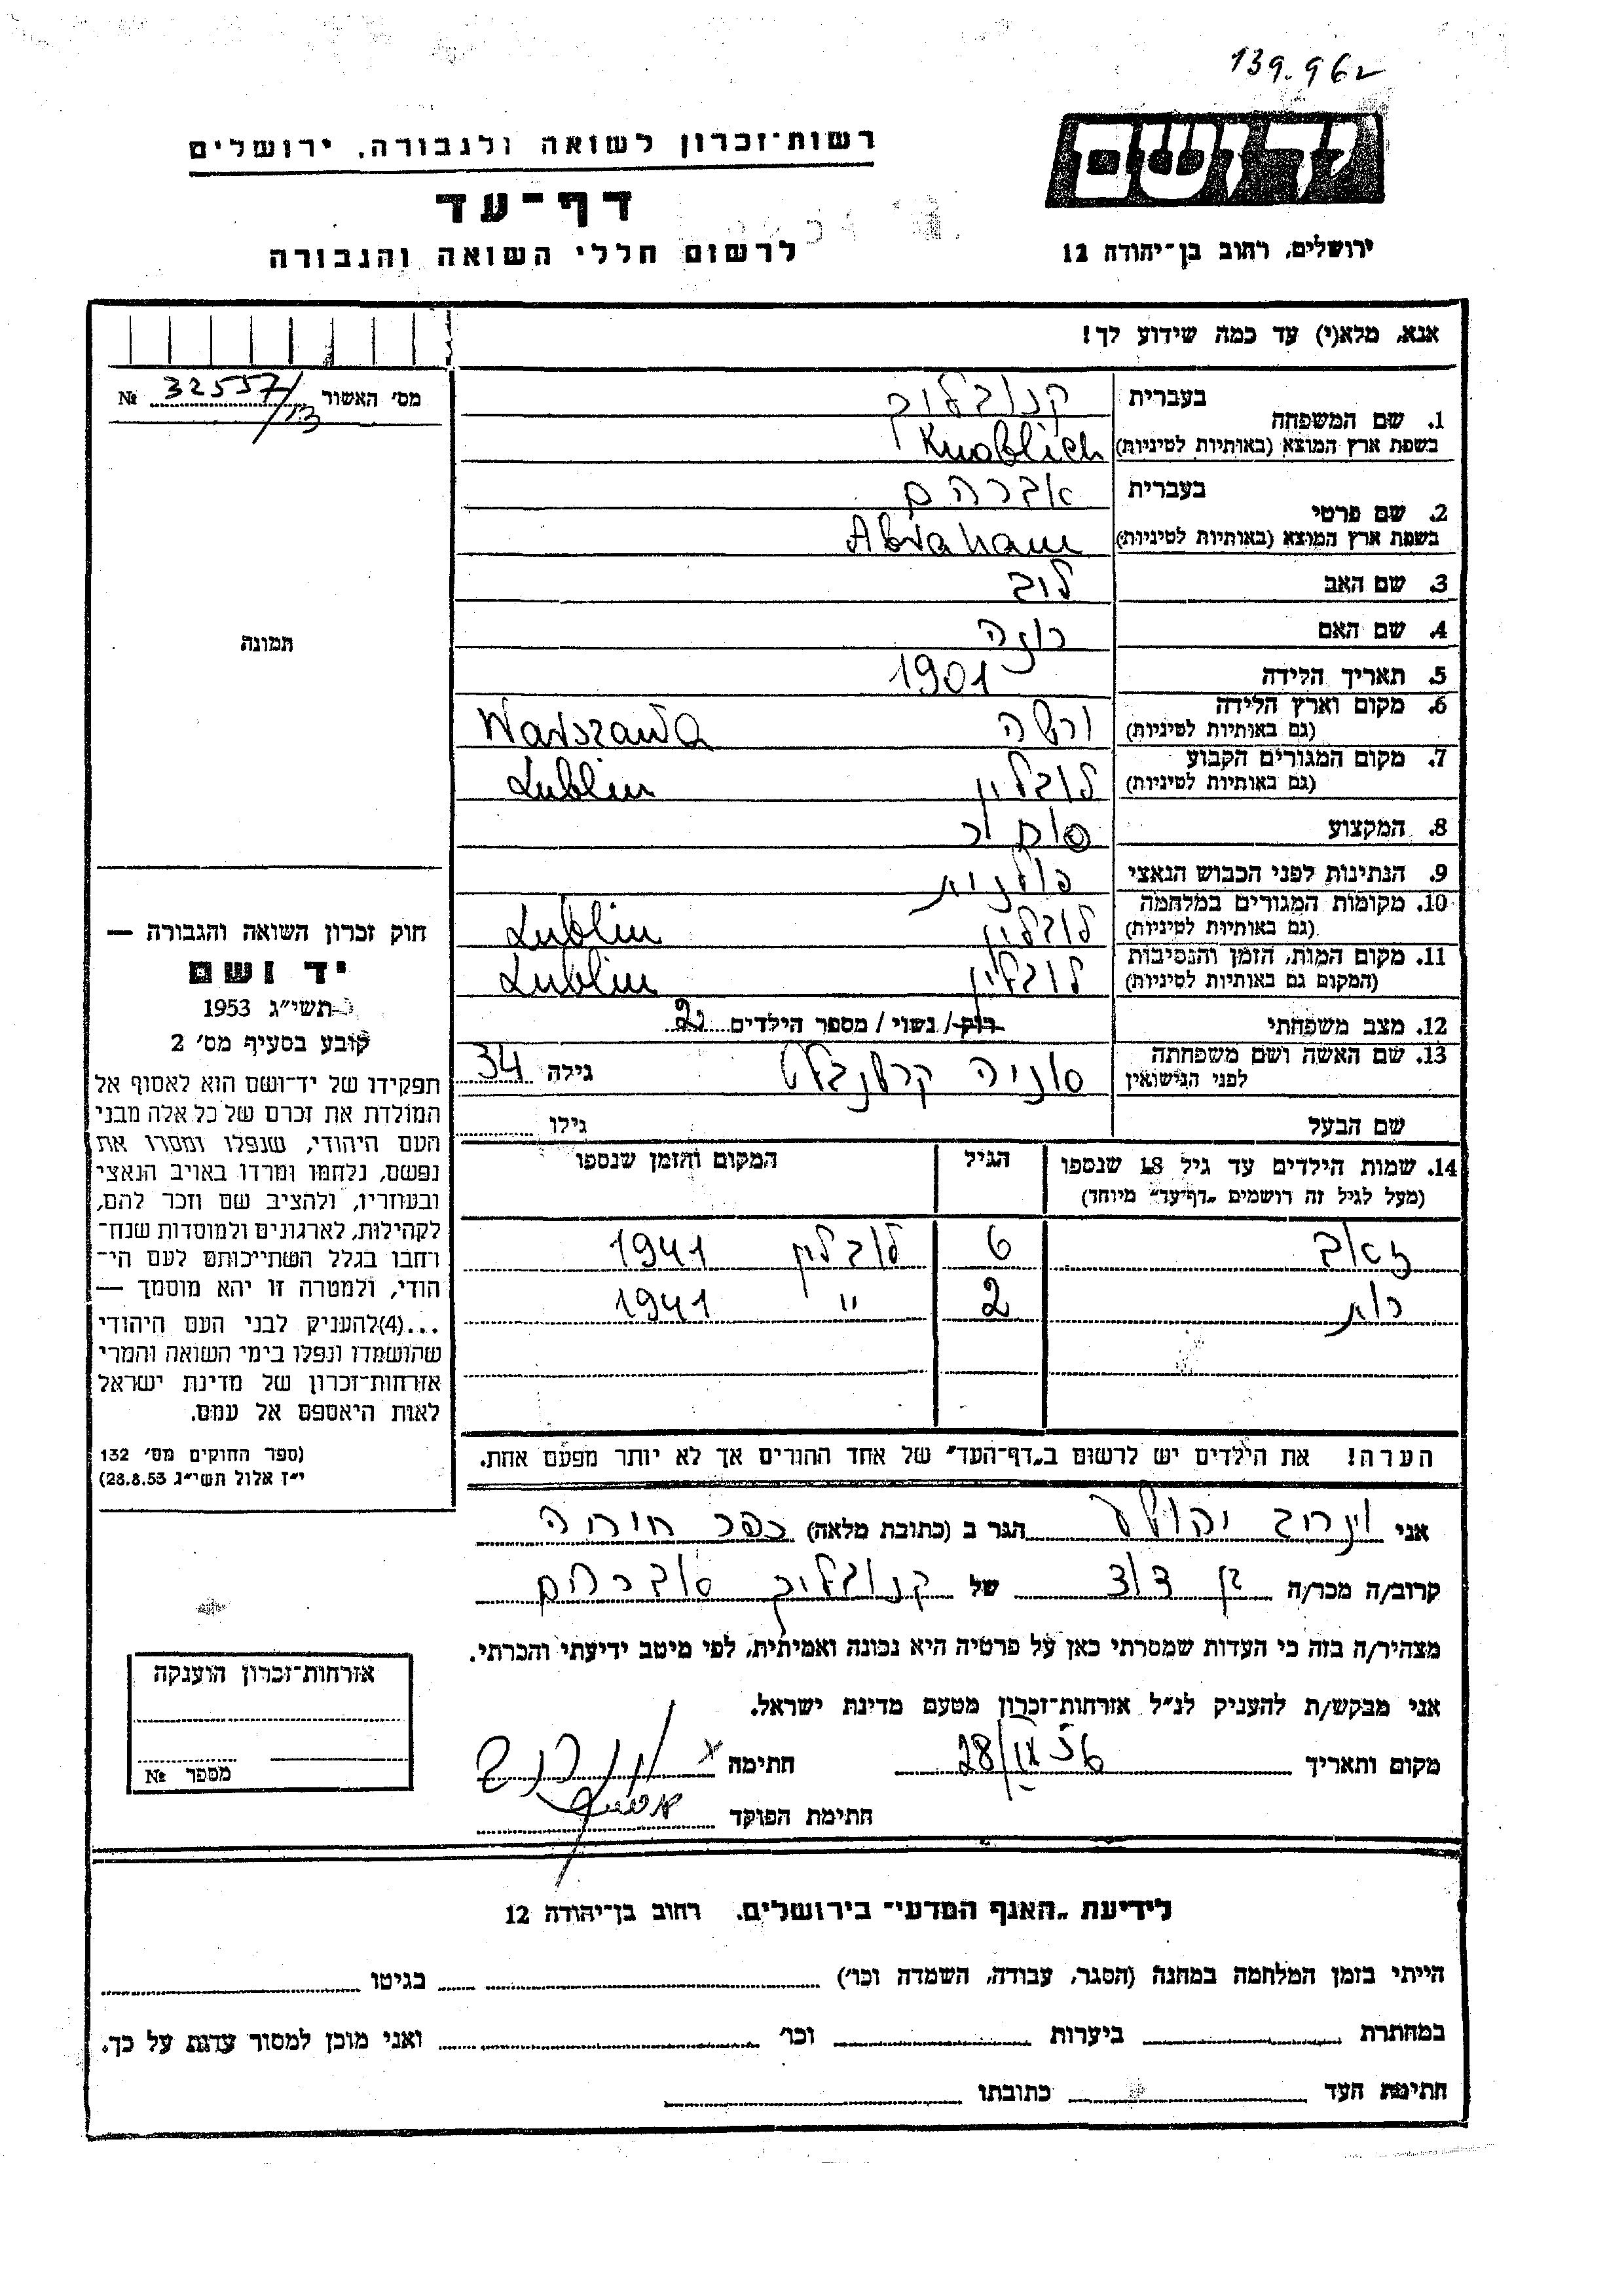 139.962
רשות־זכרון לשואה ולגבורה, ירושלים
דף־עד
לרשום חללי השואה והגבורה
יד ושם
ירושלים, רחוב בן־יהודה 12
אנא, מלא(י) עד כמה שידוע לך!
מס' האשור 32557/13 №
תמונה
1. שם המשפחה בעברית קנובליך
בשפת ארץ המוצא (באותיות לטיניות) Knoblich
2. שם פרטי בעברית אברהם
בשפת ארץ המוצא (באותיות לטיניות) Abraham
3. שם האב לוב
4. שם האם רוזה
5. תאריך הלידה 1901
6. מקום וארץ הלידה (גם באותיות לטיניות) ורשה Warszawa
7. מקום המגורים הקבוע (גם באותיות לטיניות) לובלין Lublin
8. המקצוע סוחר
9. הנתינות לפני הכבוש הנאצי פולנית
10. מקומות המגורים במלחמה (גם באותיות לטיניות) לובלין Lublin
11. מקום המות, הזמן והנסיבות (המקום גם באותיות לטיניות) לובלין Lublin
12. מצב משפחתי רוק/ נשוי/ מספר הילדים 2
13. שם האשה ושם משפחתה לפני הנישואין סוניה גילה 34
שם הבעל גילו
14. שמות הילדים עד גיל 18 שנספו (מעל לגיל זה רושמים „דף־עד" מיוחד) הגיל המקום והזמן שנספו
זאב 6 לובלין 1941
רות 2 " 1941
הערה! את הילדים יש לרשום ב„דף־העד" של אחד ההורים אך לא יותר מפעם אחת.
חוק זכרון השואה והגבורה —
יד ושם
תשי״ג 1953
קובע בסעיף מס' 2
תפקידו של יד־ושם הוא לאסוף אל
המולדת את זכרם של כל אלה מבני
העם היהודי, שנפלו ומסרו את
נפשם, נלחמו ומרדו באויב הנאצי
ובעוזריו, ולהציב שם וזכר להם,
לקהילות, לארגונים ולמוסדות שנח־
רחבו בגלל השתייכותם לעם הי־
הודי, ולמטרה זו יהא מוסמך —
...(4)להעניק לבני העם היהודי
שהושמדו ונפלו בימי השואה והמרי
אזרחות־זכרון של מדינת ישראל
לאות היאספם אל עמם.
(ספר החוקים מס' 132
י״ז אלול תשי״ג 28.8.53)
אני יהושע הגר ב (כתובת מלאה) כפר
קרוב/ה מכר/ה בן דוד של קנובליך אברהם
מצהיר/ה בזה כי העדות שמסרתי כאן על פרטיה היא נכונה ואמיתית, לפי מיטב ידיעתי והכרתי.
אני מבקש/ת להעניק לנ״ל אזרחות־זכרון מטעם מדינת ישראל.
מקום ותאריך חתימה
חתימת הפוקד
אזרחות־זכרון הוענקה
מספר №
לידיעת „האגף המדעי״ בירושלים, רחוב בן־יהודה 12
הייתי בזמן המלחמה במחנה (הסגר, עבודה, השמדה וכו') בגיטו
במחתרת ביערות וכו' ואני מוכן למסור עדות על כך.
חתימת העד כתובתו